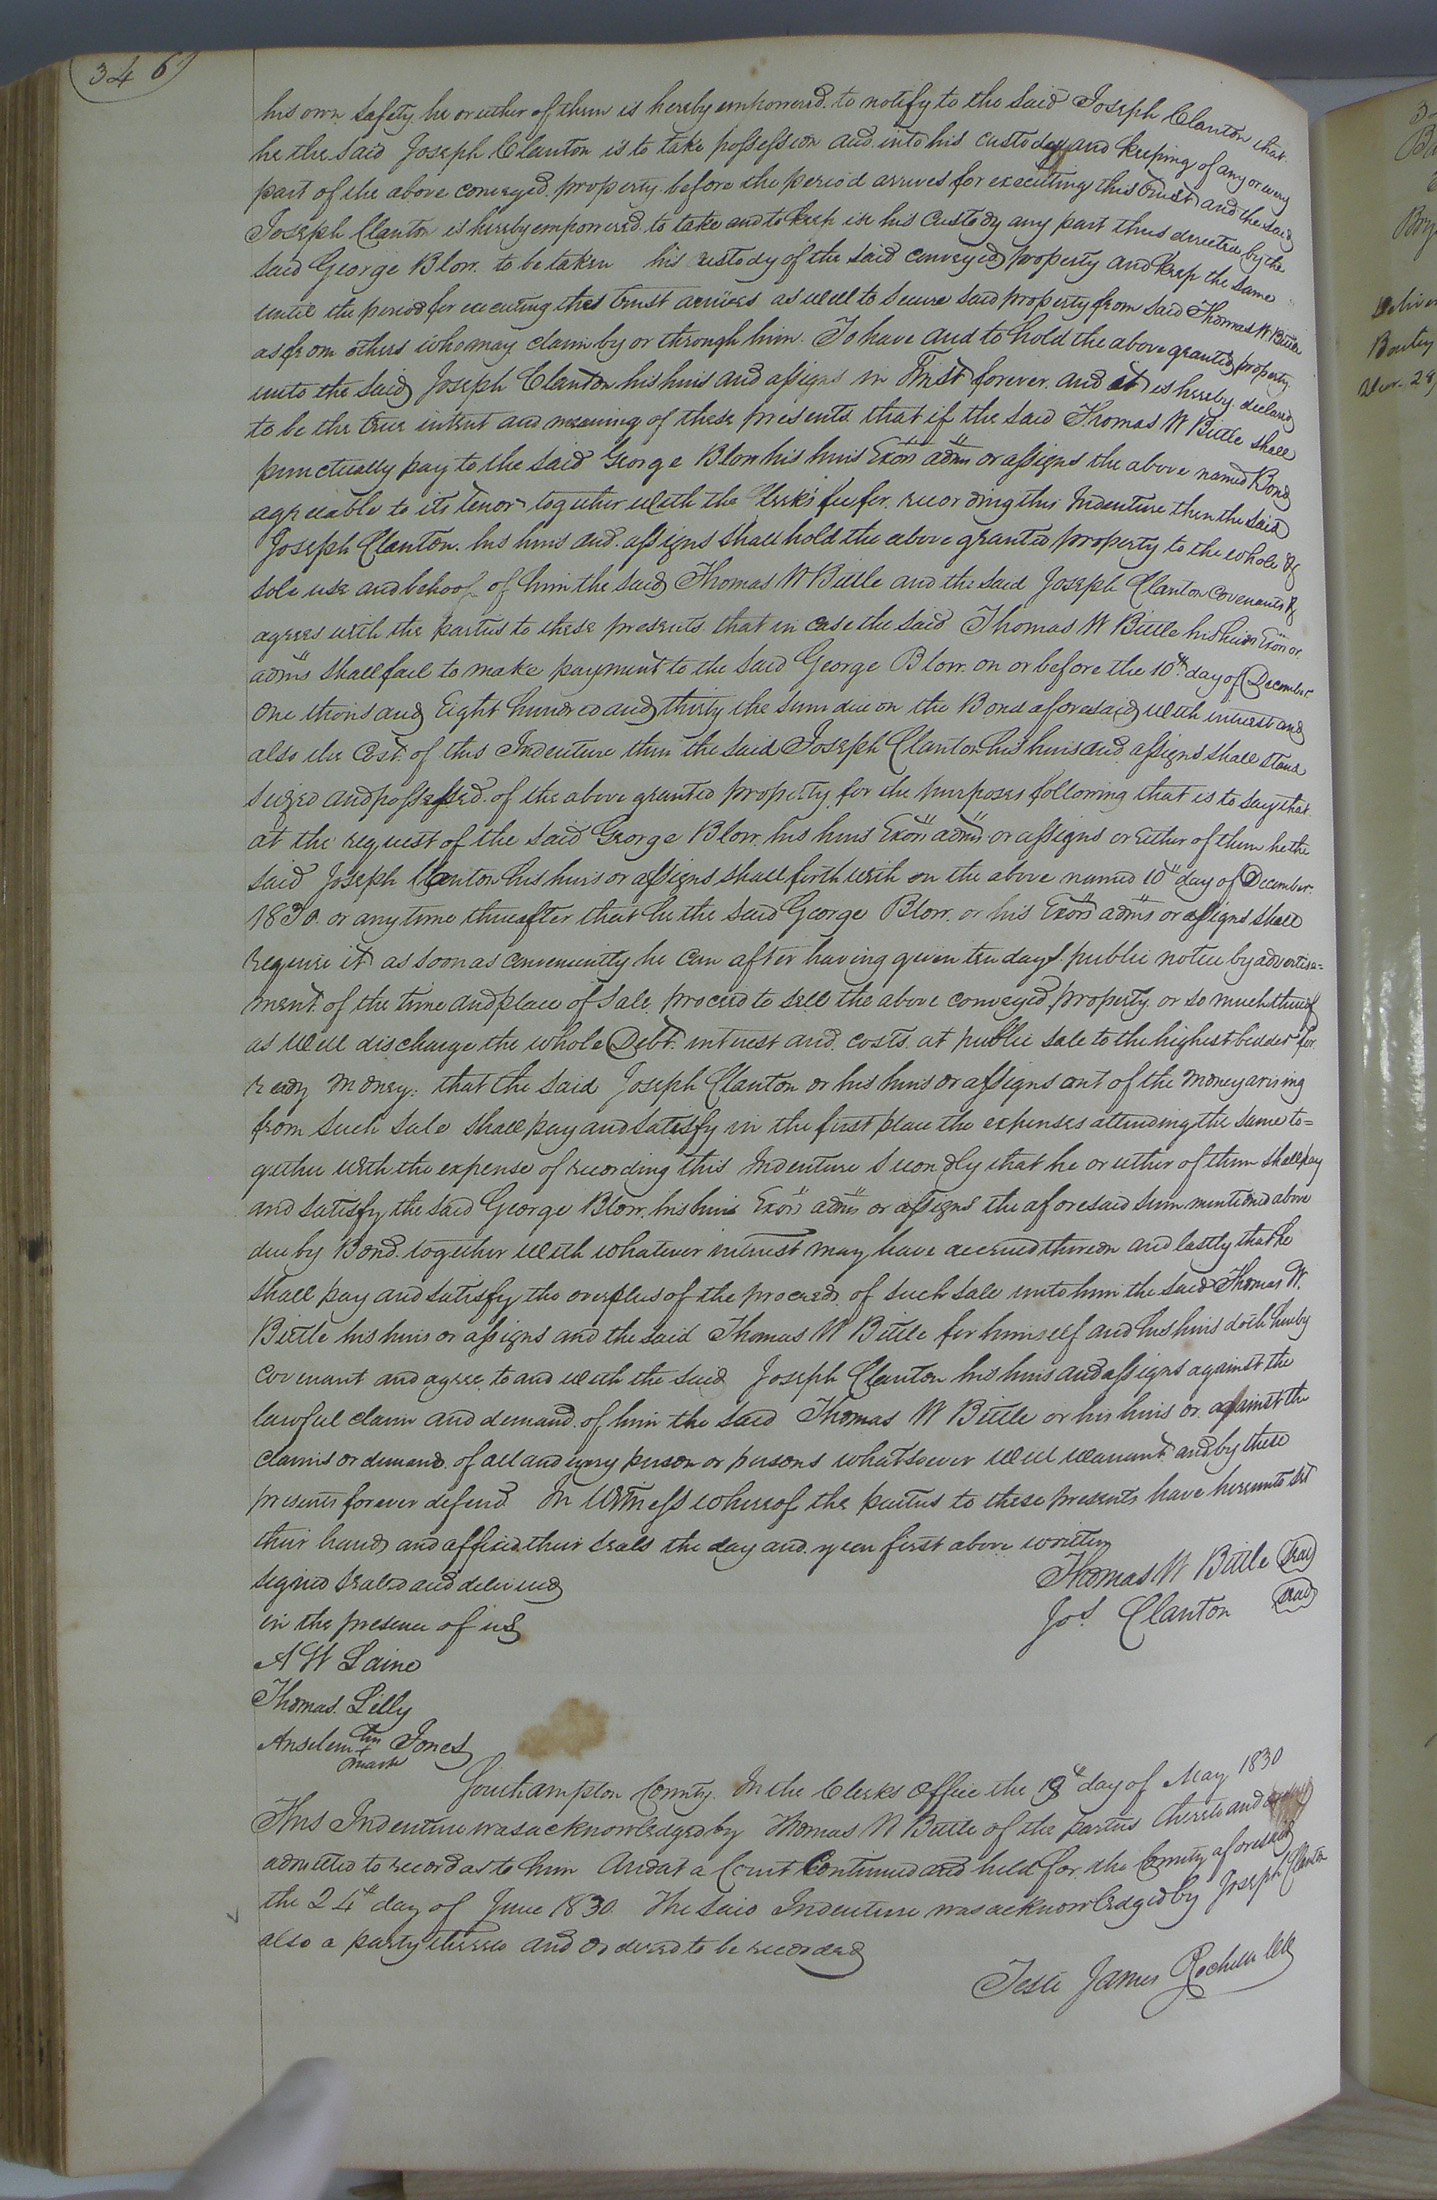 346
his own safety he or either of them is hereby empowered to notify to the said Joseph Clanton that
he the said Joseph Clanton is to take possession and into his custoday and keeping of any or every
part of the above conveyed property before the period arrives for executing this trust and the said
Joseph Clanton is hereby empowered to take and to keep in his custody any part thus directed by the
said George Blow to be taken his custody of the said conveyed property and keep the same
until the period for executing this trust arrives as well to secure said property from said Thomas W Bittle
as from others who may claim by or through him. To have and to hold the above granted property
unto the said Joseph Clanton his heirs and assigns in Trust forever, and it is hereby declared
to be the true intent and meaning of these presents that if the said Thomas W Bittle shall
punctually pay to the said George Blow his heirs Exors adms or assigns the above named Bond
agreeable to its tenor together with the Clerk's fee for recording this Indenture then the said
Joseph Clanton his heirs and assigns shall hold the above granted property to the whole &
sole use and behoof of him the said Thomas W Bittle and the said Joseph Clanton covenants &
agrees with the parties to these presents that in case the said Thomas W Bittle his heirs Exors or
adms shall fail to make payment to the said George Blow on or before the 10th day of December
One thousand Eight hundred and thirty the sum due on the Bond aforesaid with interest and
also the Cost of this Indenture then the said Joseph Clanton his heirs and assigns shall stand
seized and possessed of the above granted property for the purposes following that is to say that
at the request of the said George Blow his heirs Exors adms or assigns or either of them he the
said Joseph Clanton his heirs or assigns shall forth with on the above named 10th day of December
1830 or any time thereafter that he the said George Blow or his Exors adms or assigns shall
require it as soon as conveniently he can after having given ten days public notice by advertise=
ment of the time and place of sale proceed to sell the above conveyed property or so much thereof
as will discharge the whole Debt interest and costs at public sale to the highest bidder for
ready money: that the said Joseph Clanton or his heirs or assigns out of the money arising
from such sale shall pay and satisfy in the first place the expenses attending the same to=
gether with the expense of recording this Indenture secondly that he or either of them shall pay
and satisfy the said George Blow his heirs Exors adms or assigns the aforesaid sum mentioned above
due by Bond together with whatever interest may have accrued thereon and lastly that he
shall pay and satisfy the overplus of the proceeds of such sale unto him the said Thomas W.
Bittle his heirs or assigns and the said Thomas W Bittle for himself and his heirs doth hereby
covenant and agree to and with the said Joseph Clanton his heirs and assigns against the
lawful claim and demand of him the said Thomas W Bittle or his heirs or against the
claims or demand of all and every person or persons whatsoever will warrant and by these
presents forever defend In Witness whereof the parties to these presents have hereunto set
their hands and affixed their seals the day and year first above written
Signed sealed and delivered
Thomas W Bittle Seal
in the presence of us
Jos. Clanton Seal
A W Laine
Thomas Lilly
Anselem his Jones
mark
Southampton County. In the Clerks Office the day of May 1830
This Indenture was acknowledged by Thomas W Bittle of the parties thereto and
admitted to record as to him And at a Court Continued and held for the County aforesaid
the 24th day of June 1830 The said Indenture was acknowledged by Joseph Clanton
also a party thereto and ordered to be recorded
Teste James Rochelle Clk